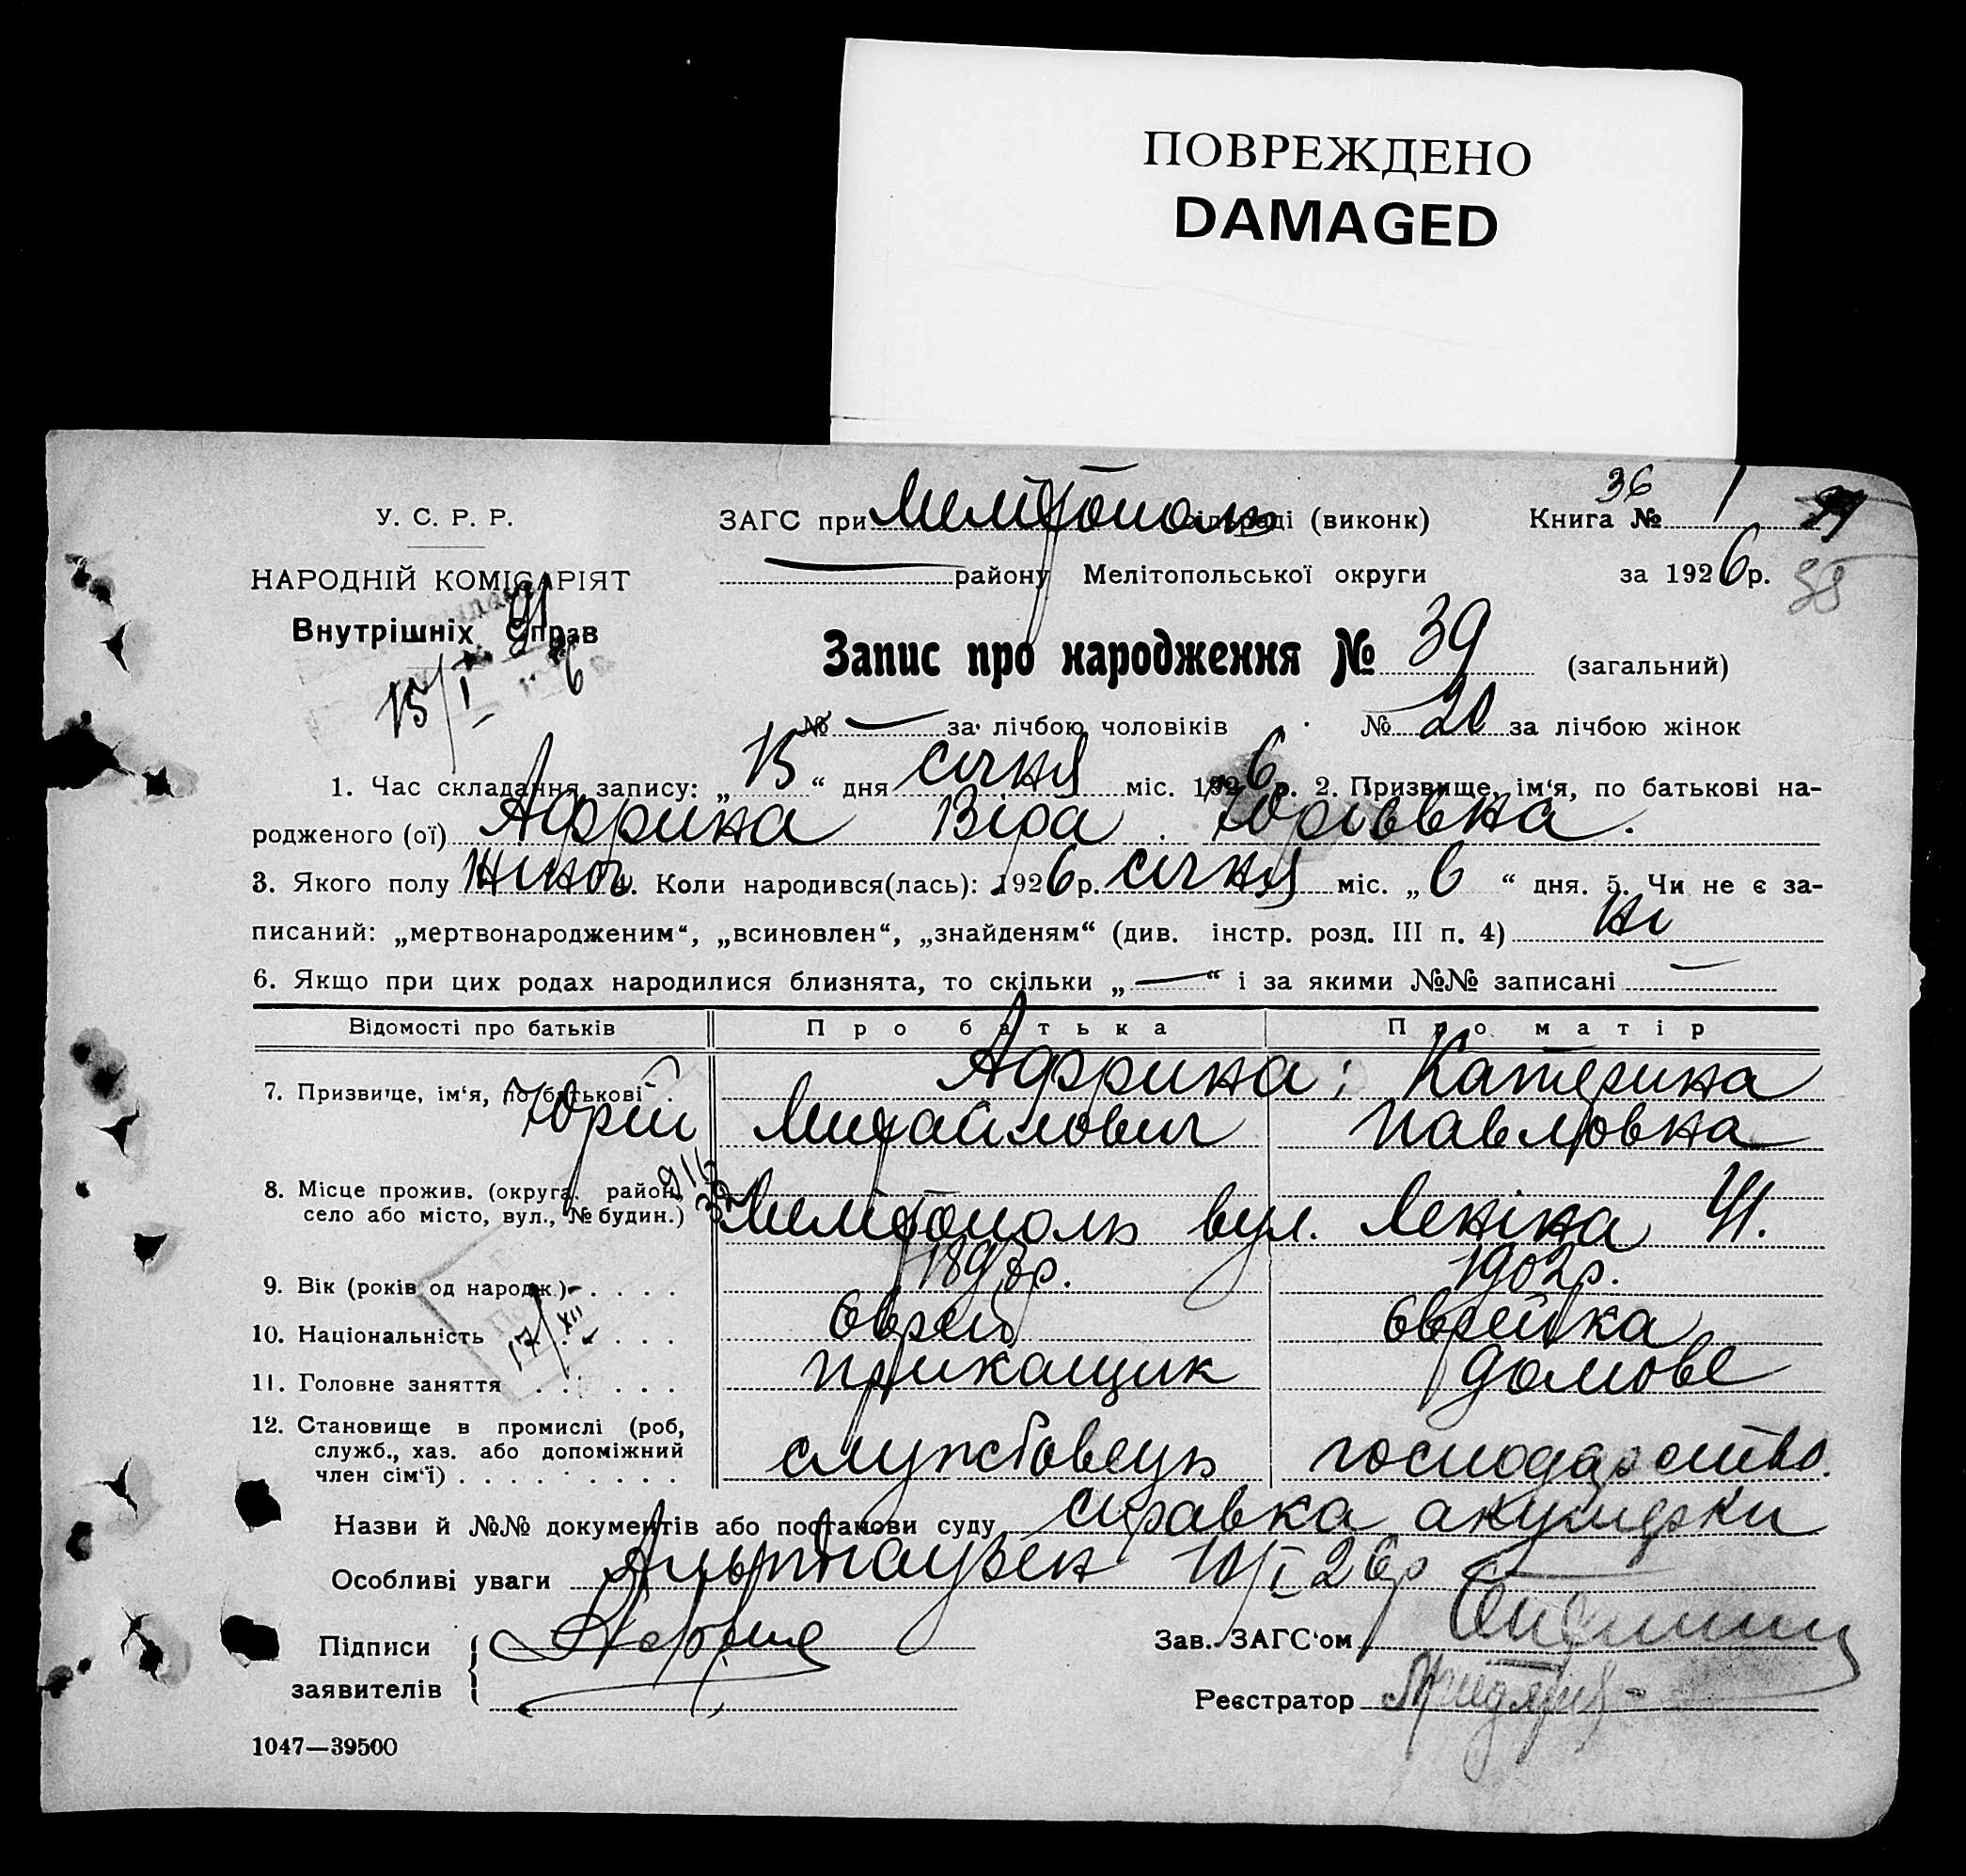 ПОВРЕЖДЕНО
DAMAGED
36
У. С. Р. Р. ЗАГС при Мелітополь сільраді (виконк) Книга № 1
НАРОДНІЙ КОМІСАРІЯТ району Мелітопольської округи за 1926 р. 38
Внутрішніх Справ
15/I 6
Запис про народження № 39 (загальний)
№ — за лічбою чоловіків № 20 за лічбою жінок
1. Час складання запису: „15“ дня січня міс. 1926 р. 2. Призвище, ім‘я, по батькові на-
родженого (ої) Африна Віра Юріївна.
3. Якого полу жіноч 4. Коли народився(лась): 1926 р. січня міс. „6“ дня. 5. Чи не є за-
писаний: „мертвонародженим“, „всиновлен“, „знайденям“ (див. інстр. розд. III п. 4) Ні
6. Якщо при цих родах народилися близнята, то скільки „—“ і за якими №№ записані —
Відомості про батьків Про батька Про матір
Африна: Катерина
7. Призвище, ім‘я, по батькові
Юрій Михайлович Павловна
8. Місце прожив. (округа, район,
село або місто, вул., № будин.) Мелітополь вул. Леніна 41.
9. Вік (років од народж.) 1898р. 1902р.
10. Національність Єврей Єврейка
17/XII
11. Головне заняття прикащик домове
12. Становище в промислі (роб,
служб., хаз. або допоміжний
член сім‘ї) службовець господарство.
Назви й №№ документів або постанови суду справка акушерки
Особливі уваги Альтгаузен 10/I 26р
Підписи
заявителів
Зав. ЗАГС‘ом
Реєстратор
1047—39500